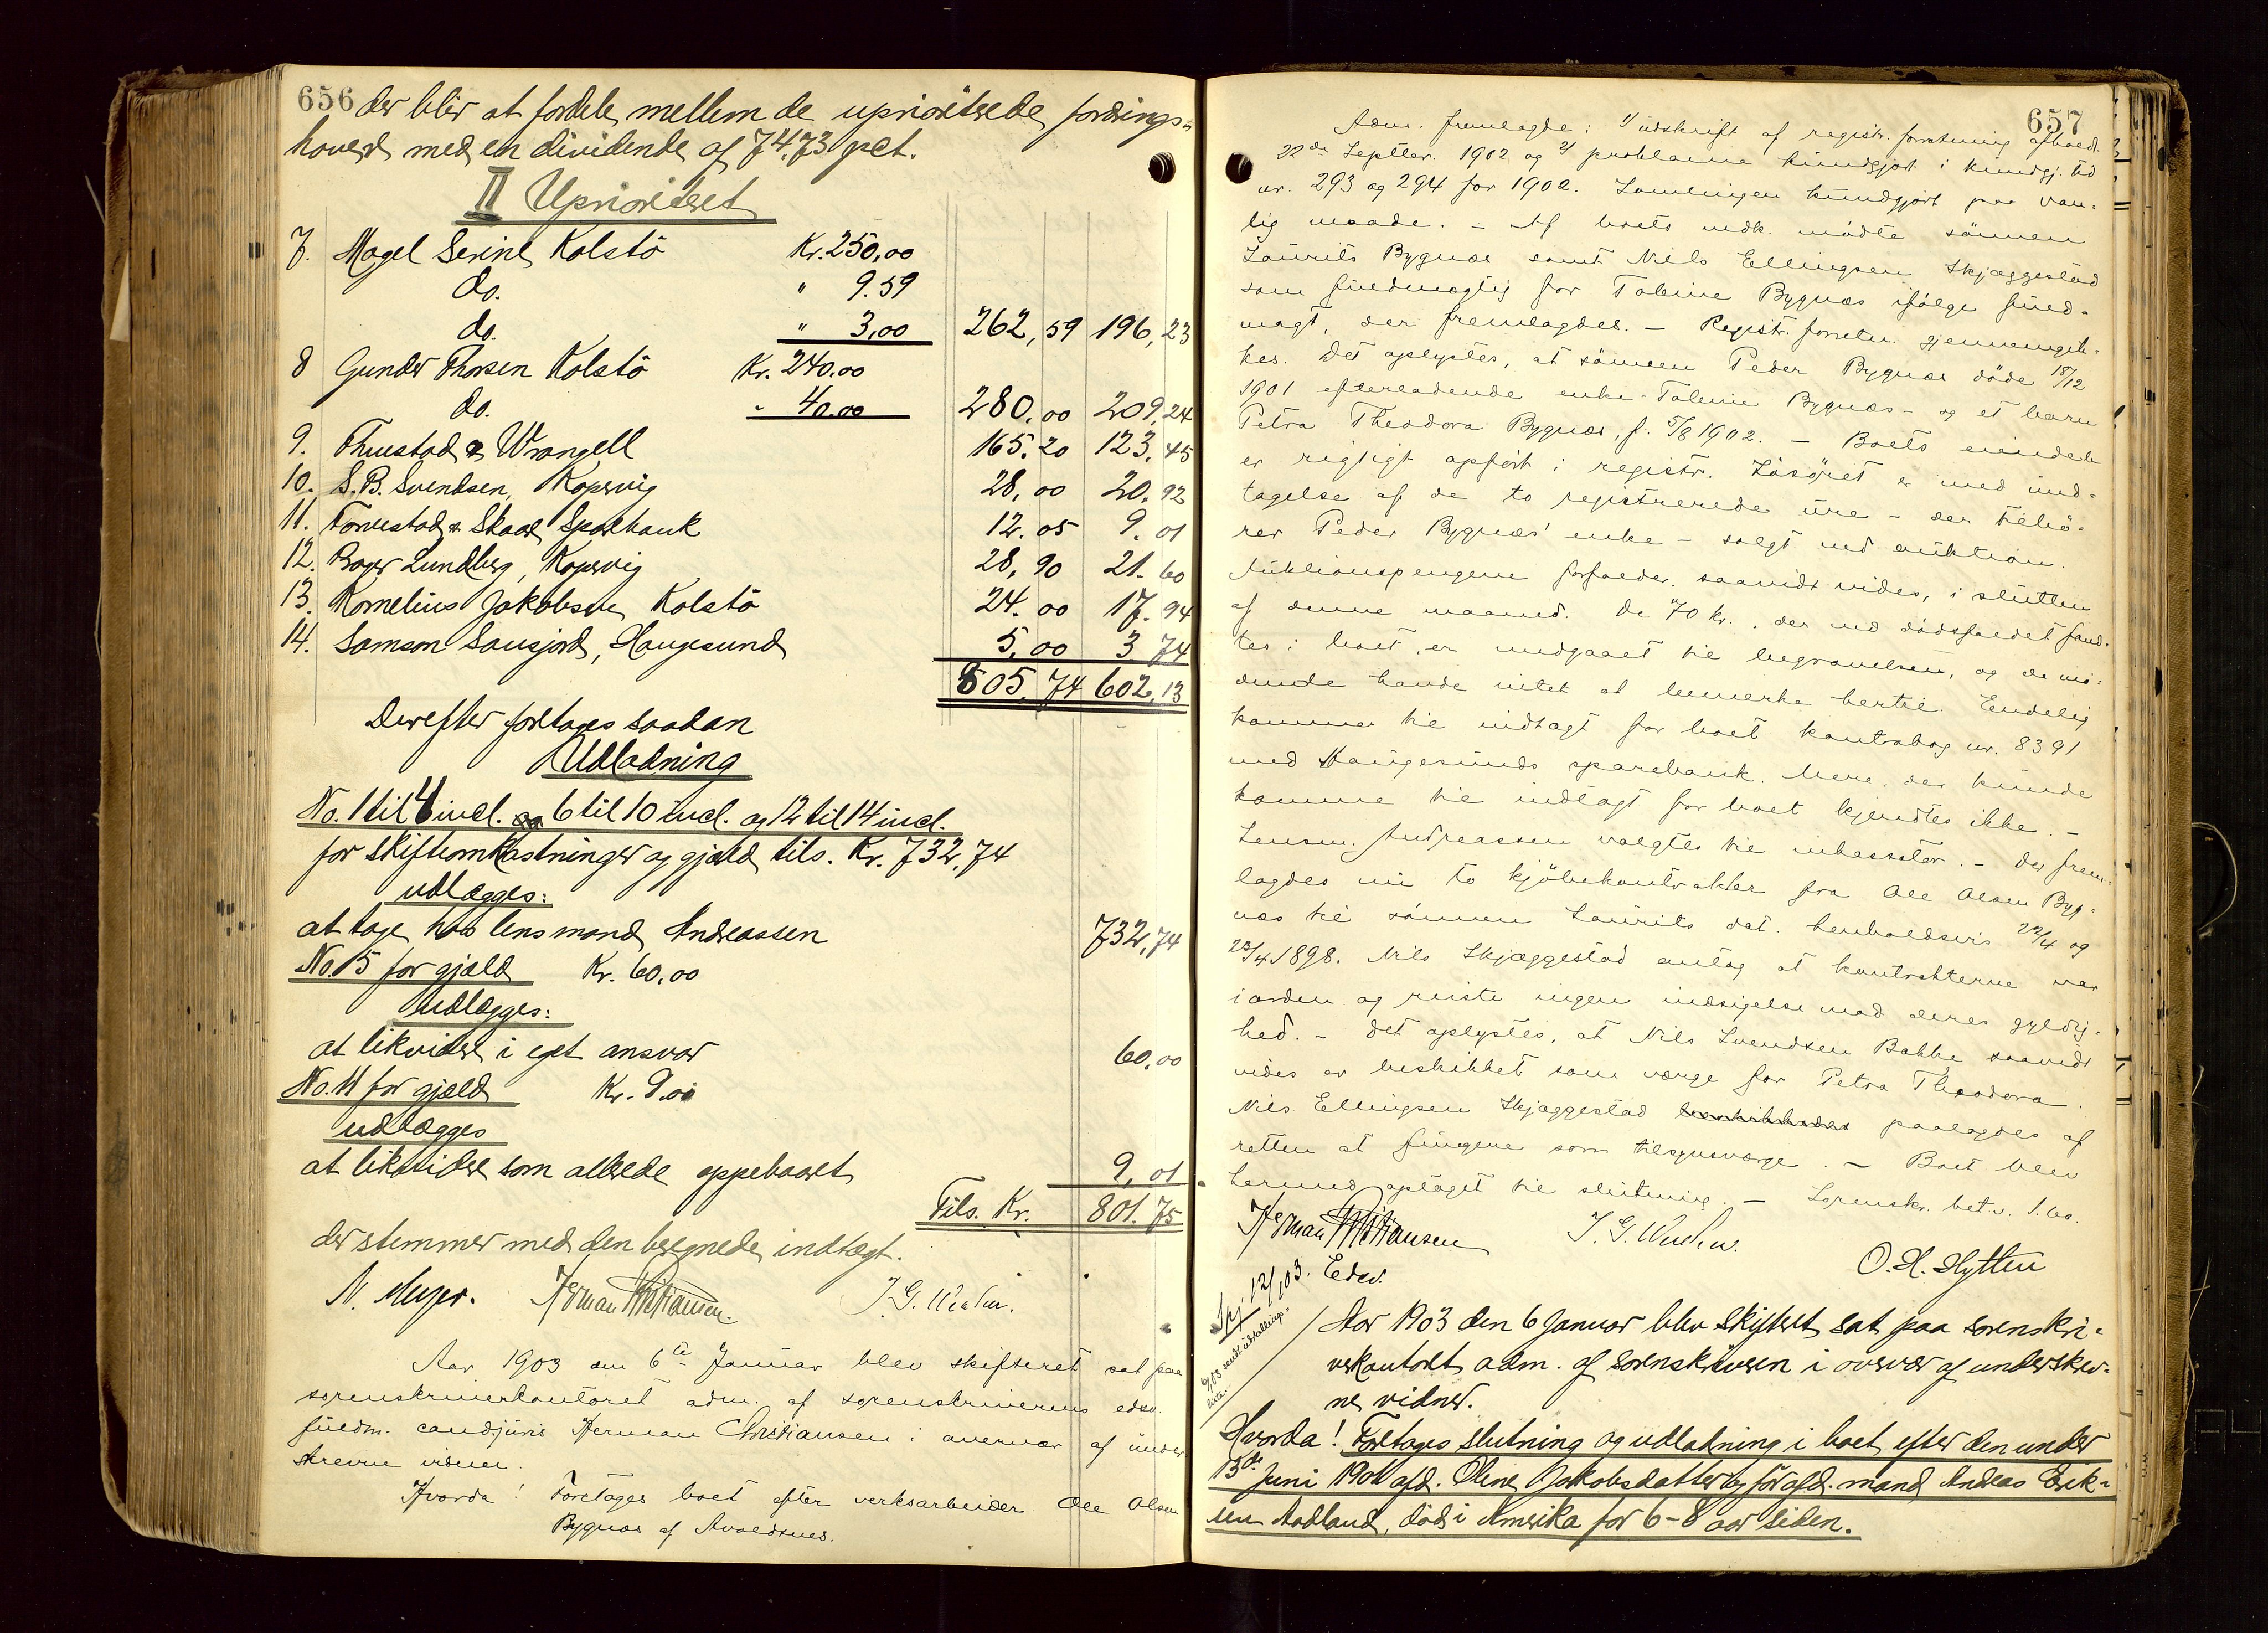 656 der blir at fordele mellem de uprioriterede fordrings-
havere med en dividende af 74.73 pct.
II Uprioriteret
7. Magel Serine Kolstö Kr. 250,00
do. " 9.59
do. " 3,00 262,59 196,23
8 Gunder Thorsen Kolstö Kr. 240.00
do. " 40.00 280.00 209,24
9. Thuestad & Wrangell 165.20 123.45
10. S. B. Svendsen, Kopervig 28,00 20.92
11. Torvestad & Skaare Sparebank 12.05 9.01
12. Lundberg, Kopervig 28,90 21.60
13. Kornelius Jakobsen Kolstö 24.00 17.94
14. Samson Sausjord, Haugesund 5,00 3.74
805.74 602,13
Derefter foretages saadan
Udlodning
No. 1 til 4 incl. og 6 til 10 incl. og 12 til 14 incl.
for skifteomkostninger og gjæld tils. Kr. 732,74
udlægges:
at tage hos lensmand Andreassen 732,74
No. 5 for gjæld Kr. 60.00
udlægges:
at likvidere i eget ansvar 60,00
No. 11 for gjæld Kr. 9.01
udlægges
at likvidere som allerede oppebaaret 9,01
Tils. Kr. 801.75
der stemmer med den beregnede indtægt.
N. Meyer. Herman Christiansen. J. G. Wichw.
Aar 1903 den 6te Januar blev skifteret sat paa
sorenskriverkontoret adm. af sorenskriverens edsv.
fuldm. cand juris Herman Christiansen i overvær af under
skrevne vidner.
Hvorda! Foretages boet efter verksarbeider Ole Olsen
Bygnæs af Avaldsnes.
657
Adm. fremlagde: 1/ udskrift af registr. forretning afholdt
22de Septbr. 1902 og 2/ proklama kundgjort i kundgj. tid
nr. 293 og 294 for 1902. Samlingen kundgjort paa van-
lig maade. – Af boets vedk. mödte sönnen
Laurits Bygnæs samt Nils Ellingsen Skjæggestad
som fuldmægtig for Taline Bygnæs ifölge fuld-
magt, der fremlagdes. – Registr. forretn. gjennemgik-
kes. Det oplystes, at sönnen Peder Bygnæs döde 18/12
1901 efterladende enke – Taline Bygnæs – og et barn
Petra Theodora Bygnæs, f. 5/8 1902. – Boets eiendele
er rigtigt opfört i registr. Lösöret er med und-
tagelse af de to registrerede ure – der tilhö-
rer Peder Bygnæs' enke – solgt ved auktion.
Auktionspengene forfalder, saavidt vides, i slutten
af denne maaned. De 70 kr., der ved dödsfaldet fand-
tes i boet, er medgaaet til begravelsen, og de mö-
dende havde intet at bemerke hertil. Endelig
kommer til indtægt for boet kontrabog nr. 8391
med Haugesunds sparebank. Mere, der kunde
komme til indtægt for boet kjendtes ikke. –
Lensm. Andreassen valgtes til inkassator. – Der frem-
lagdes nu to kjöbekontrakter fra Ole Olsen Byg-
næs til sönnen Laurits dat. henholdsvis 22/4 og
23/4 1898. Nils Skjæggestad antog at kontrakterne var
i orden og reiste ingen indsigelse mod deres gyldig-
hed. – Det oplystes, at Nils Svendsen Bakke saavidt
vides er beskikket som værge for Petra Theodora.
Nils Ellingsen Skjæggestad paalagdes af
retten at fungere som tilsynsværge. – Boet blev
hermed optaget til slutning. – Sorenskr. bet. v.
Herman Christiansen J. G. Wichw.
Edsv. O. H. Hytten
Skj. 12/1 03.
Aar 1903 den 6 Januar blev skifteret sat paa sorenskri-
verkontoret adm. af sorenskriveren i overvær af underskrev-
ne vidner.
Hvorda! Foretages slutning og udlodning i boet efter den under
13de Juni 1901 afd. Oline Jakobsdatter og förafd. mand Andreas Erik-
sen Aadland, död i Amerika for 6–8 aar siden.